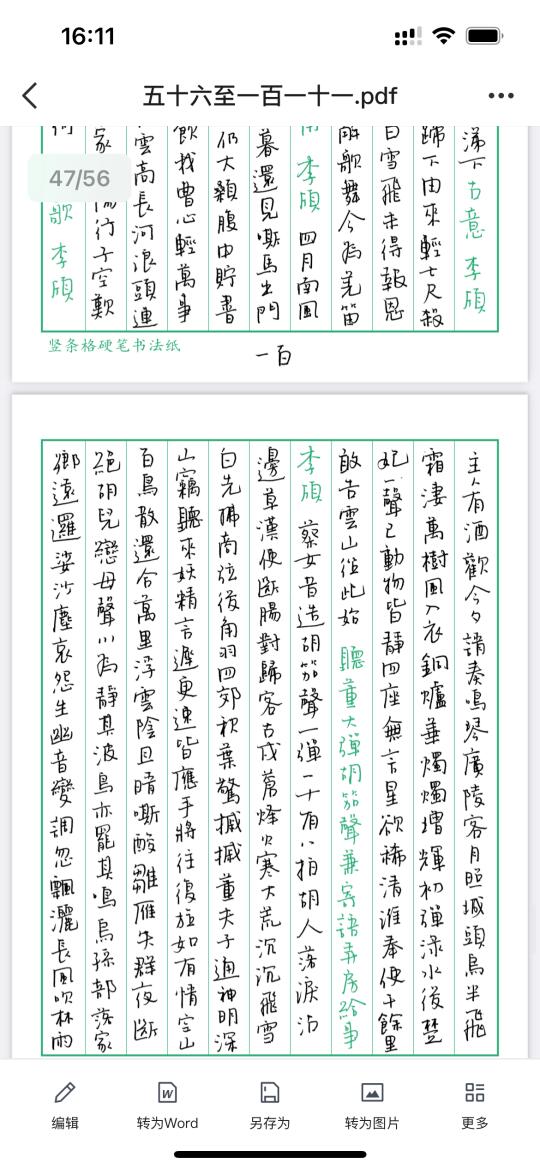 16:11
五十六至一百一十一.pdf
47/56
涕下 古意 李頎
蹄下由來輕七尺殺
白雪飛未得報恩
解歌舞今為羌笛
李頎 四月南風
暮還見嘶馬出門
仍大顙腹中貯書
飲我曹心輕萬事
雲高長河浪頭連
家陽行子空歎
歌 李頎
竖条格硬笔书法纸
一百
主人有酒歡今夕請奏鳴琴廣陵客月照城頭烏半飛
霜淒萬樹風入衣銅爐華燭燭增輝初彈淥水後楚
妃一聲已動物皆靜四座無言星欲稀清淮奉使千餘里
敢告雲山從此始 聽董大彈胡笳聲兼寄語弄房給事
李頎 蔡女昔造胡笳聲一彈一十有八拍胡人落淚沾
邊草漢使斷腸對歸客古戍蒼烽火寒大荒沉沉飛雪
白先拂商弦後角羽四郊秋葉驚摵摵董夫子通神明深
山竊聽來妖精言遲更速皆應手將往復旋如有情空山
百鳥散還合萬里浮雲陰且晴嘶酸雛雁失群夜斷
絕胡兒戀母聲川為靜其波鳥亦罷其鳴烏孫部落家
鄉遠邏娑沙塵哀怨生幽音變調忽飄灑長風吹林雨
编辑
转为Word
另存为
转为图片
更多